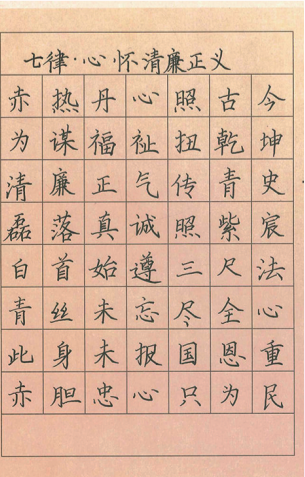 七律·心·怀清廉正义
赤热丹心照古今
为谋福祉扭乾坤
清廉正气传青史
磊落真诚照紫宸
白首始遵三尺法
青丝未忘尽全心
此身未报国恩重
赤胆忠心只为民